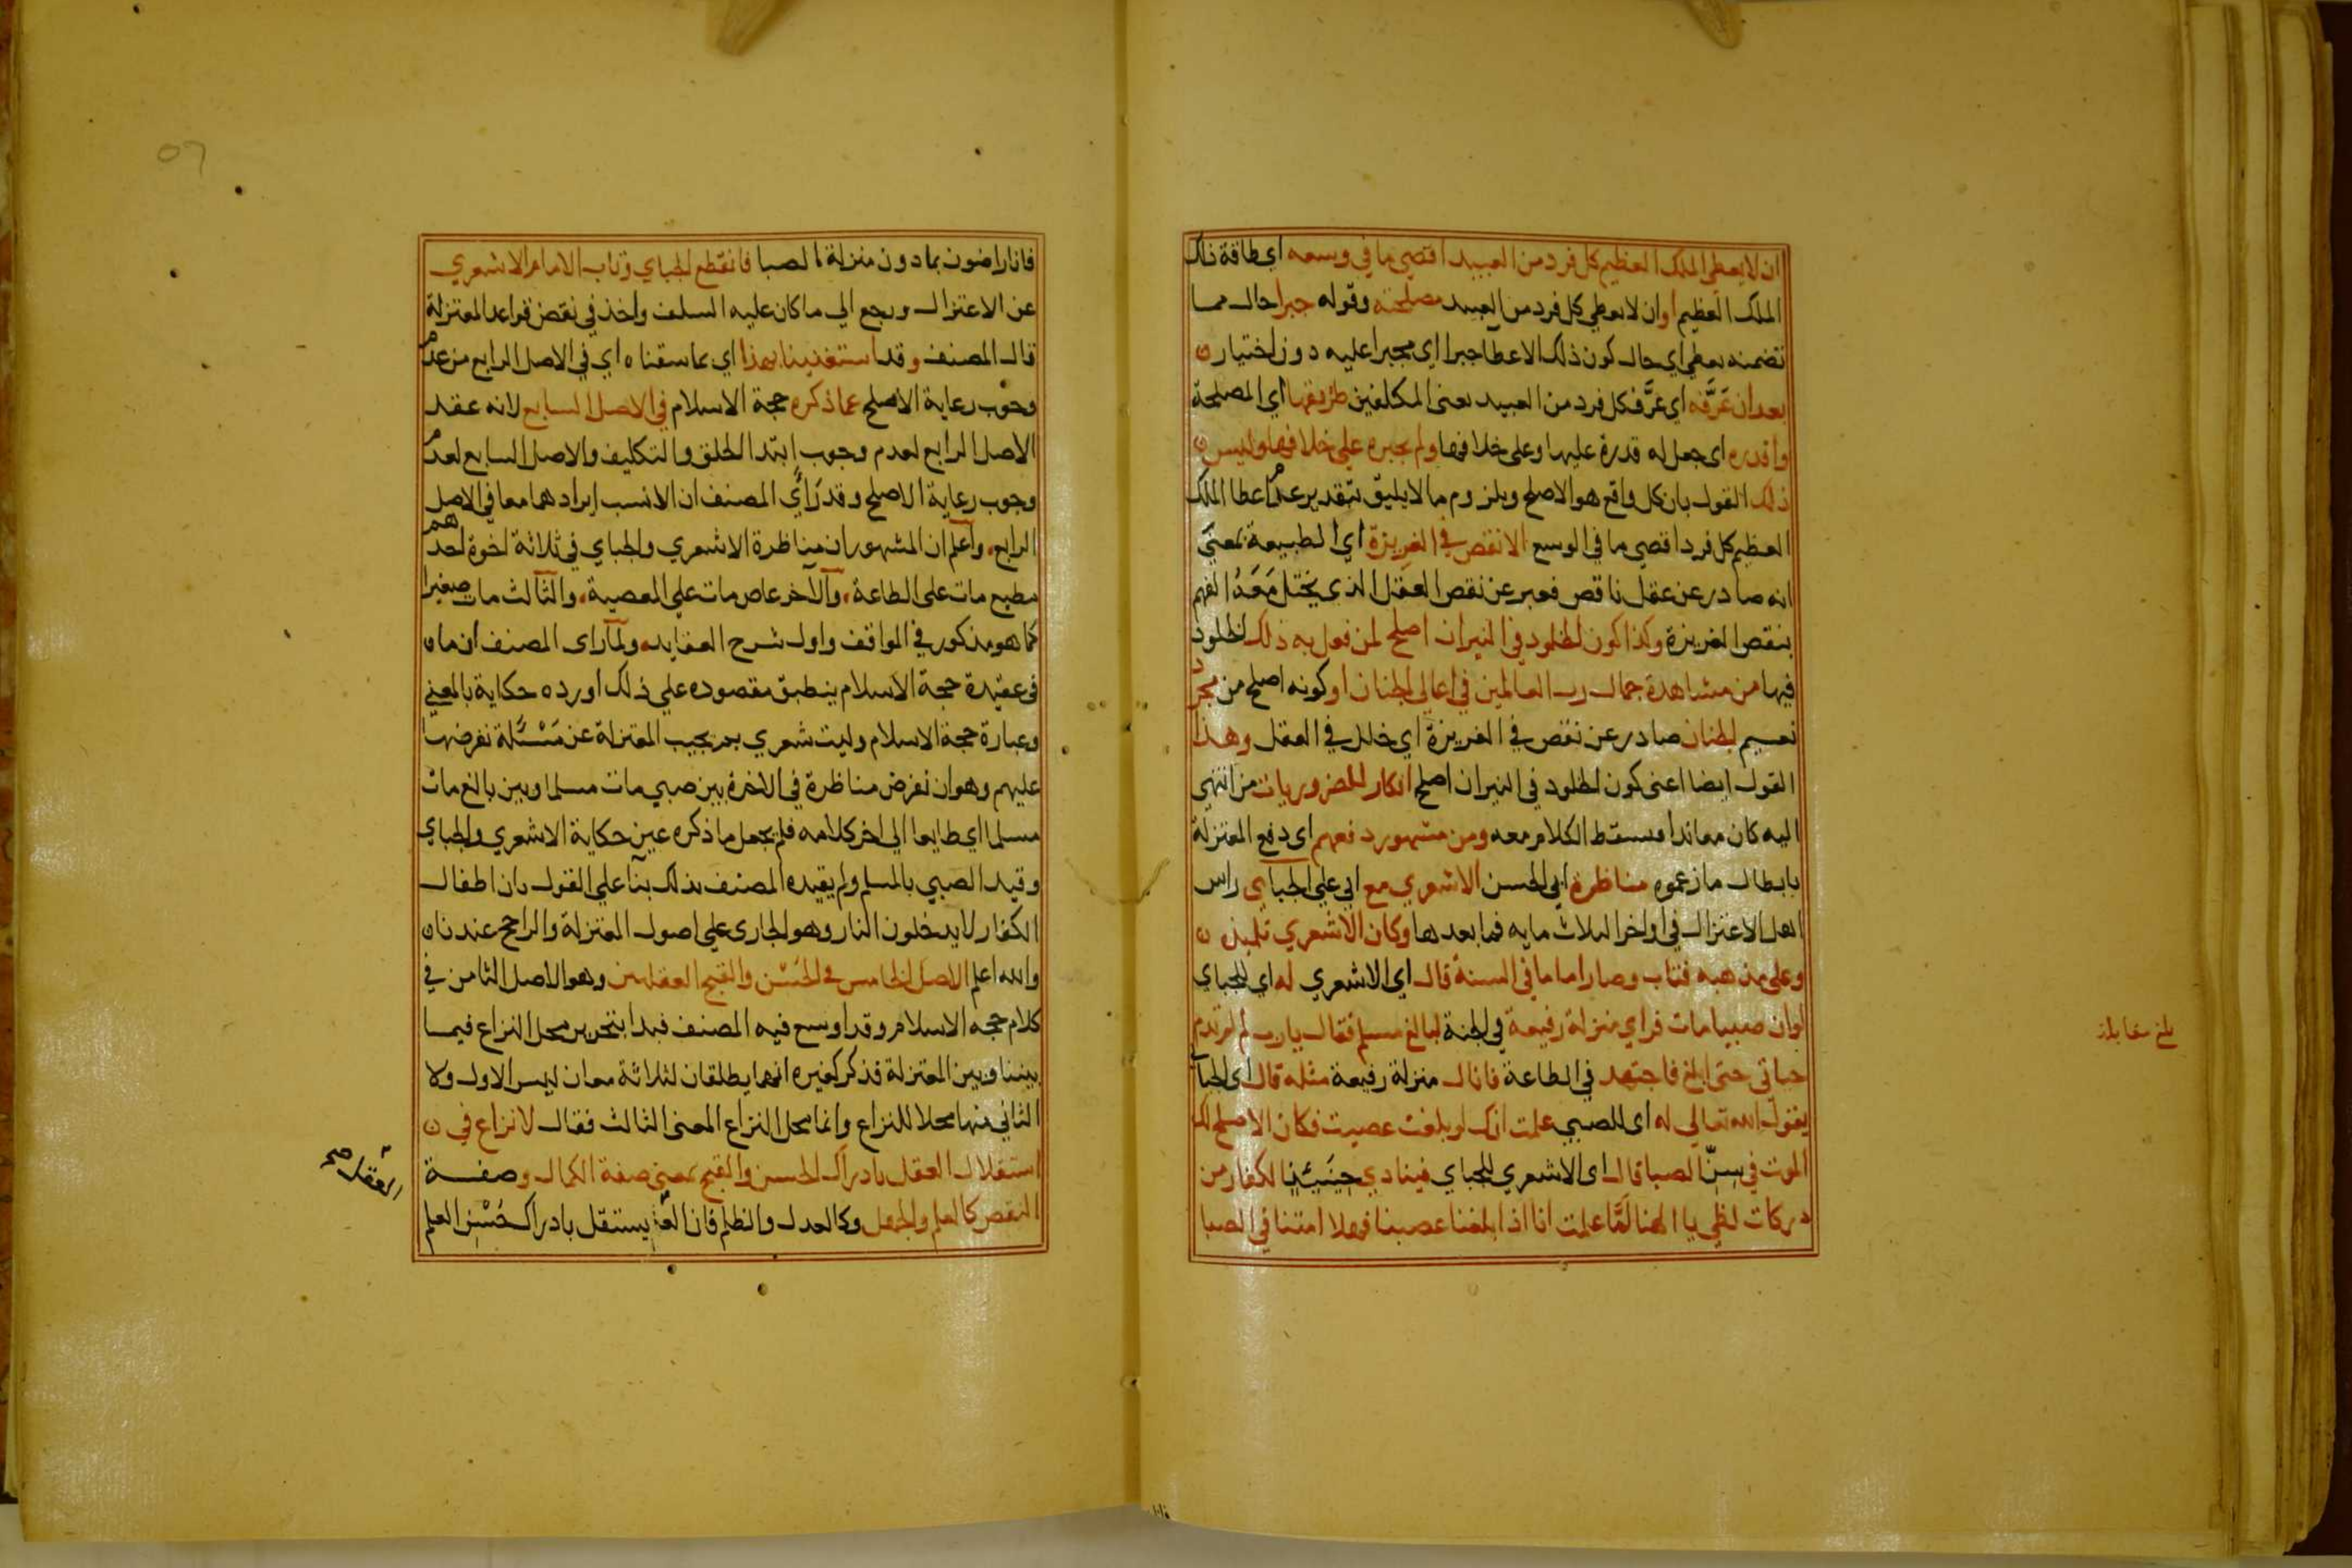 ان لا يعطي الملك العظيم كل فرد من العبيد اقصي ما في وسعه اي طاقة ذلك
الملك العظيم اوان لا يعطي كل فرد من العبيد مصلحته وقوله جبرا حال مما
تضمنه يعطي اي حال كون ذلك الاعطا جبرا اي مجبرا عليه دون اختيار
بعد ان عَرَّفه اي عرَّف كل فرد من العبيد يعني المكلفين طريقها اي المصلحة
واقدره اى جعل له قدرة عليها وعلى خلافها ولم يجبره علي خلافها وليس
ذلك القول بان كل واقع هو الاصلح ويلزوم ما لا يليق بتقدير عدم اعطا الملك
العظيم كل فرد اقصي ما في الوسع الا نقص في الغريزة اي الطبيعة بمعنى
انه صادر عن عقل ناقص فعبر عن نقص العقل الذي يختل معه الفهم
بنقص الغريزة وكذا كون الخلود في النيران اصلح لمن فعل به ذلك الخلود
فيها من مشاهدة جمال رب العالمين في اعالي الجنان او كونه اصلح من مجرد
نعيم الجنان صادر عن نقص في الغريزة اي خلل في العقل وهذا
القول ايضا اعنى كون الخلود في النيران اصلح انكار للضروريات من انتهي
اليه كان معاندا فسقط الكلام معه ومن مشهور دفعهم اى دفع المعتزلة
بابطال ما زعموه مناظرة ابي الحسن الاشعري مع ابي علي الجبآيي راس
اهل الاعتزال في اواخر الثلاث مايه فما بعدها وكان الاشعري تلميذه
وعلى مذهبه فتاب وصار اماما في السنة قال اي الاشعري له اي للجباي
لو ان صبيا مات فراي منزلة رفيعة في الجنة لبالغ مسلم فقال يا رب لم لم تدم
حياتي حتى ابلغ فاجتهد في الطاعة فانال منزلة رفيعة مثله قال اى الجبآ
يقول الله تعالى له اى للصبي علمت انك لو بلغت عصيت فكان الاصلح لك
الموت في سنّ الصبا قال اى الاشعري للجباي فينادي حِينَئِذٍ الكفار من
دركات لظي يا الهنا لَمَّا علمت انا اذا بلغنا عصينا فهلا امتنا في الصبا
بلغ مقابلة
فانا
فانا راضون بما دون منزلة الصبا فانقطع الجباي وتاب الامام الاشعري
عن الاعتزال ورجع الي ما كان عليه السلف واخذ في نقض قواعد المعتزلة
قال المصنف وقد استغنينا بهذا اي بما سقناه اي في الاصل الرابع من عدم
وجوب رعاية الاصلح عما ذكره حجة الاسلام في الاصل السابع لانه عقد
الاصل الرابع لعدم وجوب ابتدا الخلق والتكليف والاصل السابع لعدم
وجوب رعاية الاصلح وقد رَأي المصنف ان الانسب ايرادهما معا في الاصل
الرابع، وآعلم ان المشهور ان مناظرة الاشعري والجباي في ثلاثة اخوة احدهم
مطيع مات على الطاعة، وآلآخر عاص مات علي المعصية، والثالث مات صغيرا
كما هو مذكور في المواقف واول شرح العقايد، ولما راى المصنف ان ما
في عقيدة حجة الاسلام ينطبق مقصوده علي ذلك اورده حكاية بالمعني
وعبارة حجة الاسلام وليت شعري بم يجيب المعتزلة عن مَسْئَلة نفرضها
عليهم وهو ان نفرض مناظرة في الاخرة بين صبي مات مسلما وبين بالغ مات
مسلما اي طايعا الي اخر كلامه فلم يجعل ما ذكره عين حكاية الاشعري والجباي
وقيد الصبي بالمسلم ولم يقيده المصنف بذلك بنآ علي القول بان اطفال
الكفار لا يدخلون النار وهو الجارى علي اصول المعتزلة والراجح عندنا
والله اعلم الاصل الخامس في الحُسْن والقبح العقليين وهو الاصل الثامن في
كلام حجه الاسلام وقد اوسع فيه المصنف فبدا بتحرير محل النزاع فيما
بيننا وبين المعتزلة فذكر كغيره انهما يطلقان لثلاثة معان ليس الاول ولا
الثاني منها محلا للنزاع وانما محل النزاع المعنى الثالث فقال لا نزاع في
استقلال العقل بادراك الحسن والقبح بمعني صفة الكمال وصفة
النقص كالعلم والجهل وكالعدل والظلم فان يستقل بادراك حُسْن العلم
العقل صح